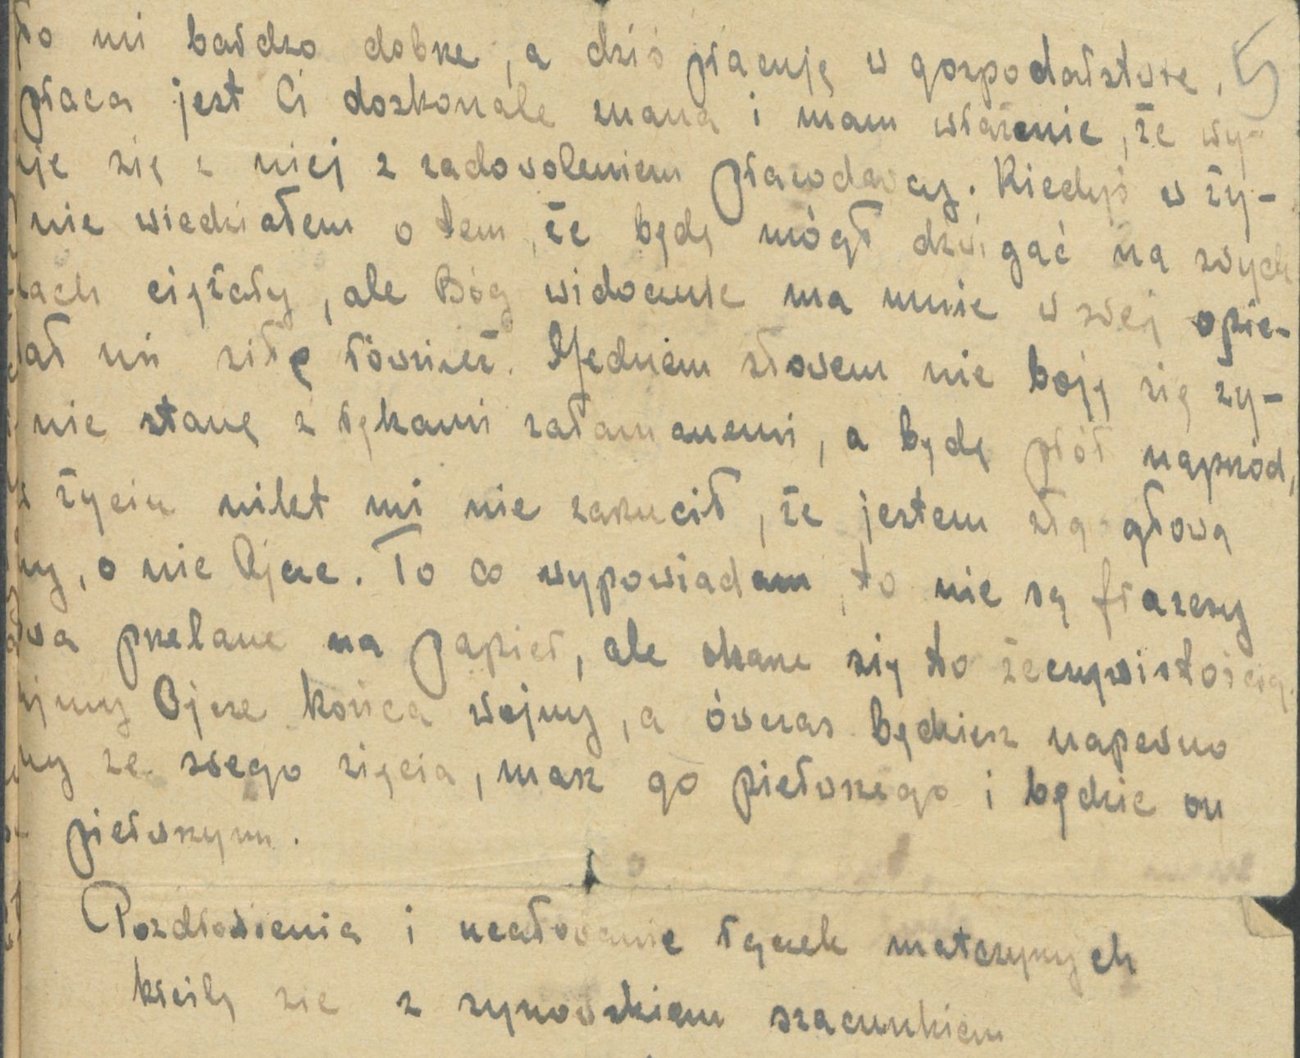 ło mi bardzo dobrze, a dziś pracuję w gospodarstwie, 5
praca jest Ci doskonale znana i mam wrażenie, że wy-
się z niej z zadowoleniem pracodawcy. Kiedyś w ży-
nie wiedziałem o tem, że będę mógł dźwigać na swych
ciężary, ale Bóg widocznie ma mnie w swej opie-
dał mi siłę również. Jednem słowem nie boję się ży-
nie stanę z rękami załamanemi, a będę parł naprzód,
życiu nikt mi nie zarzucił, że jestem złą głową
o nie Ojcze. To co wypowiadam, to nie są frazesy
przelane na papier, ale okaże się to rzeczywistością.
Ojcze końca wojny, a ówczas będziesz napewno
ze swego zięcia, masz go pierwszego i będzie on
pierwszym.
Pozdrowienia i ucałowanie rączek matczynych
kreślę sie z synowskiem szacunkiem